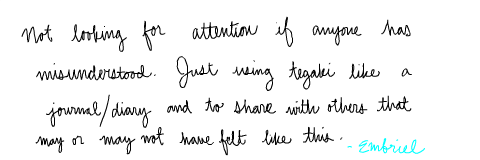 Not looking for attention if anyone has
misunderstood. Just using tegaki like a
journal/diary and to share with others that
may or may not have felt like this.
- Embricel